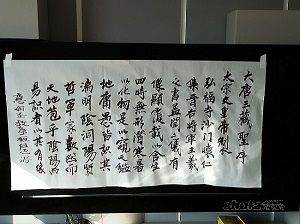 大唐三藏聖序
太宗文皇帝製
弘福寺沙門懷仁
集晉右將軍王羲
之書蓋聞二儀有
像顯覆載以含生
四時無形潛寒暑
以化物是以窺天鑑
地庸愚皆識其
端明陰洞陽賢
哲罕窮數然而
天地苞乎陰陽而
易識者以其有像